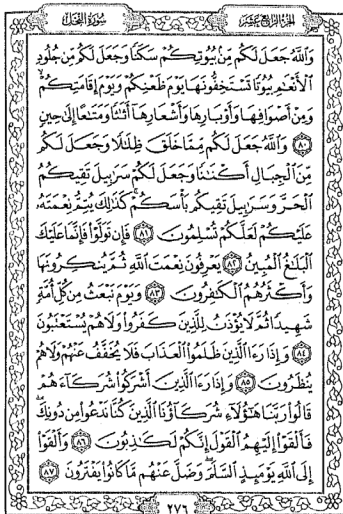 الجزء الرابع عشر
سورة النحل
وَاللَّهُ جَعَلَ لَكُم مِّنۢ بُيُوتِكُمْ سَكَنًا وَجَعَلَ لَكُم مِّن جُلُودِ
ٱلْأَنْعَٰمِ بُيُوتًا تَسْتَخِفُّونَهَا يَوْمَ ظَعْنِكُمْ وَيَوْمَ إِقَامَتِكُمْ
وَمِنْ أَصْوَافِهَا وَأَوْبَارِهَا وَأَشْعَارِهَآ أَثَٰثًا وَمَتَٰعًا إِلَىٰ حِينٍ
۝٨٠ وَٱللَّهُ جَعَلَ لَكُم مِّمَّا خَلَقَ ظِلَٰلًا وَجَعَلَ لَكُم
مِّنَ ٱلْجِبَالِ أَكْنَٰنًا وَجَعَلَ لَكُمْ سَرَٰبِيلَ تَقِيكُمُ
ٱلْحَرَّ وَسَرَٰبِيلَ تَقِيكُم بَأْسَكُمْ كَذَٰلِكَ يُتِمُّ نِعْمَتَهُۥ
عَلَيْكُمْ لَعَلَّكُمْ تُسْلِمُونَ ۝٨١ فَإِن تَوَلَّوْا۟ فَإِنَّمَا عَلَيْكَ
ٱلْبَلَٰغُ ٱلْمُبِينُ ۝٨٢ يَعْرِفُونَ نِعْمَتَ ٱللَّهِ ثُمَّ يُنكِرُونَهَا
وَأَكْثَرُهُمُ ٱلْكَٰفِرُونَ ۝٨٣ وَيَوْمَ نَبْعَثُ مِن كُلِّ أُمَّةٍ
شَهِيدًا ثُمَّ لَا يُؤْذَنُ لِلَّذِينَ كَفَرُوا۟ وَلَا هُمْ يُسْتَعْتَبُونَ
۝٨٤ وَإِذَا رَءَا ٱلَّذِينَ ظَلَمُوا۟ ٱلْعَذَابَ فَلَا يُخَفَّفُ عَنْهُمْ وَلَا هُمْ
يُنظَرُونَ ۝٨٥ وَإِذَا رَءَا ٱلَّذِينَ أَشْرَكُوا۟ شُرَكَآءَهُمْ
قَالُوا۟ رَبَّنَا هَٰٓؤُلَآءِ شُرَكَآؤُنَا ٱلَّذِينَ كُنَّا نَدْعُوا۟ مِن دُونِكَ
فَأَلْقَوْا۟ إِلَيْهِمُ ٱلْقَوْلَ إِنَّكُمْ لَكَٰذِبُونَ ۝٨٦ وَأَلْقَوْا۟
إِلَى ٱللَّهِ يَوْمَئِذٍ ٱلسَّلَمَ وَضَلَّ عَنْهُم مَّا كَانُوا۟ يَفْتَرُونَ ۝٨٧
٢٧٦